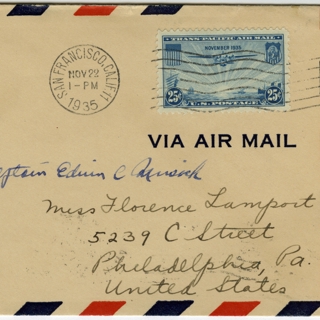 SAN FRANCISCO, CALIF. 11
NOV 22
1-PM
1935
TRANS-PACIFIC AIR MAIL
NOVEMBER 1935
25¢ U.S. POSTAGE 25¢
VIA AIR MAIL
Captain Edwin C Musick
Miss Florence Lamport
5239 C Street
Philadelphia, Pa.
United States